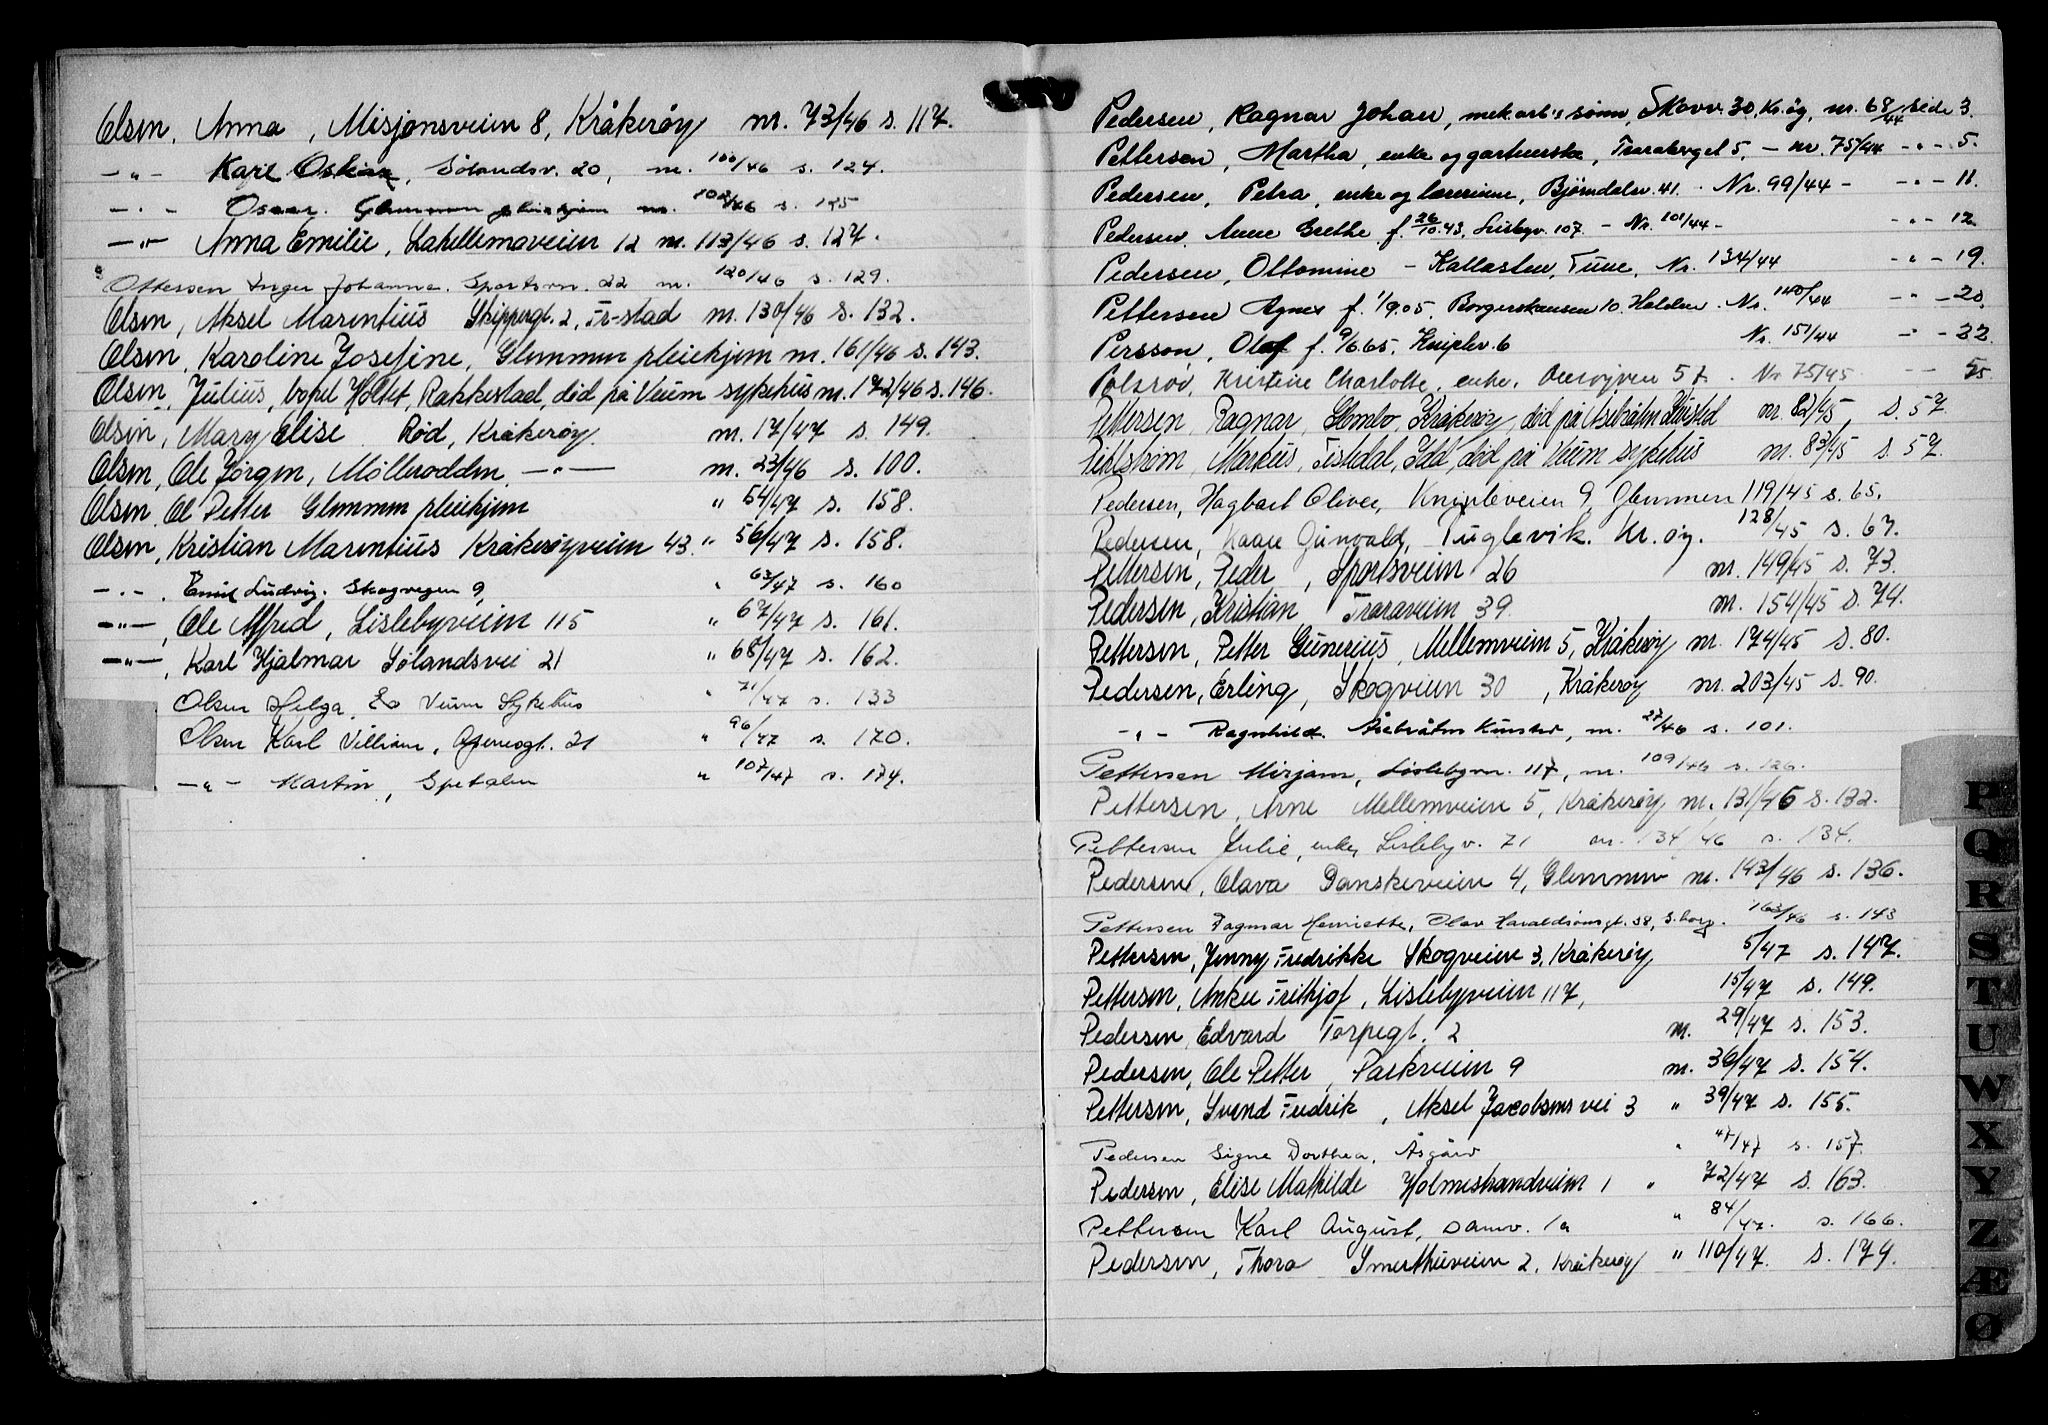 Olsen, Anna, Misjonsveien 8, Kråkerøy nr. 73/46 s. 117.
-"- Karl Oskar, Sølandsv. 20, nr. 100/46 s. 124.
-"- Oscar. Glemmen pleiehjem nr. 102/46 s. 125
-"- Anna Emilie, Lahellemoveien 12 nr. 113/46 s. 127.
Ottersen Inger Johanne. Sportsvn. 22 nr. 120/46 s. 129.
Olsen, Aksel Marentius Skippergt. 2, Fr-stad nr. 130/46 s. 132.
Olsen, Karoline Josefine, Glemmen pleiehjem nr. 161/46 s. 143.
Olsen, Julius, bopel Holtet, Rakkestad, død på Veum sykehus nr. 172/46 s. 146.
Olsen, Mary Elise Rød, Kråkerøy. nr. 17/47 s. 149.
Olsen, Ole Jørgen, Møllerodden -"- nr. 23/46 s. 100.
Olsen, Ol Petter Glemmen pleiehjem " 54/47 s. 158.
Olsen, Kristian Marentius Kråkerøyveien 43. " 56/47 s. 158.
-"-, Emil Ludvig. Skogvegen 9, " 63/47 s. 160
-"-, Ole Alfred, Lislebyveien 115 " 67/47 s. 161.
-"-, Karl Hjalmar Sølandsvei 21 " 68/47 s. 162.
Olsen Helga. Veum Sykehus " 71/47 s. 133
Olsen Karl Villiam, gt. 21 " 96/47 s. 170.
-"- Martin, Spetalen " 107/47 s. 174.
Pedersen, Ragnar Johan, mek.arb's sønn, Skovv. 30, Kr.øy, nr. 68/44 side 3.
Pettersen, Martha, enke og gartnerske, Traratorget 5, - nr. 75/44 -"- 5.
Pedersen, Petra, enke og lærerinne, Bjørndalsv. 41. - Nr. 99/44 - -"- 11.
Pedersen, Anne Grethe f. 26/10.43. Lislebyv. 107. - Nr. 101/44 - -"- 12
Pedersen, Ottomine - Kallasten, Tune, Nr. 134/44 -"- 19.
Pettersen Agnes f. 1/9.05. Borgerskansen 10. Halden. Nr. 140/44 -"- 20.
Persson, Olaf f. 9/6.65. Kniplev. 6 Nr. 151/44 -"- 22.
Polsrød, Kristine Charlotte, enke, 57. Nr 75/45 -"- 55.
Pettersen, Ragnar, Kråkerøy, død på nr. 82/45, s. 57.
Pihlstrøm, Markus, Tistedal, Idd, død på Veum sykehus nr. 83/45 s. 57.
Pedersen, Hagbart Oliver, Knipleveien 9, Glemmen 119/45 s. 65.
Pedersen, Kaare Gunvald, Fuglevik. Kr.øy. 128/45 s. 67.
Pettersen, Peder, Sportsveien 26 nr. 149/45 s. 73.
Pedersen, Kristian Traraveien 39. nr. 154/45 s. 74.
Pettersen, Petter Gunerius, Mellemveien 5, Kråkerøy nr. 174/45 s. 80.
Pedersen, Erling, Skogveien 30, Kråkerøy nr. 203/45 s. 90.
-"- Ragnhild. nr. 27/46 s. 101.
Pettersen Mirjam, Lislebyvn. 117, nr. 109/46 s. 126.
Pettersen, Arne Mellemveien 5, Kråkerøy nr. 131/46 s. 132.
Pettersen Julie, enke, Lislebyv. 71 nr. 134/46 s. 134.
Pedersen, Olava Danskeveien 4, Glemmen nr. 143/46 s. 136.
Pettersen Dagmar Henriette, Olav Haraldsønsgt. 38, S.borg. 163/46 s. 143
Pettersen, Jenny Fredrikke Skogveien 3, Kråkerøy, 5/47 s. 147.
Pettersen, Anker Frithjof, Lislebyveien 117, 15/47 s. 149.
Pedersen, Edvard Torpegt. 2 nr. 29/47 s. 153.
Pedersen, Ole Petter, Parkveien 9 nr. 36/47 s. 154.
Pettersen, Svend Fredrik, Aksel Jacobsens vei 3 " 39/47 s. 155.
Pedersen Signe Dorthea, Åsgård " 47/47 s. 157.
Pedersen, Elise Mathilde Holmestrandveien 1 " 72/47 s. 163.
Pettersen Karl August, Damv. 1a " 84/47. s. 166.
Pedersen, Thora Smertuveien 2, Kråkerøy " 110/47. s. 174.
P
Q
R
S
T
U
W
X
Y
Z
Æ
Ø